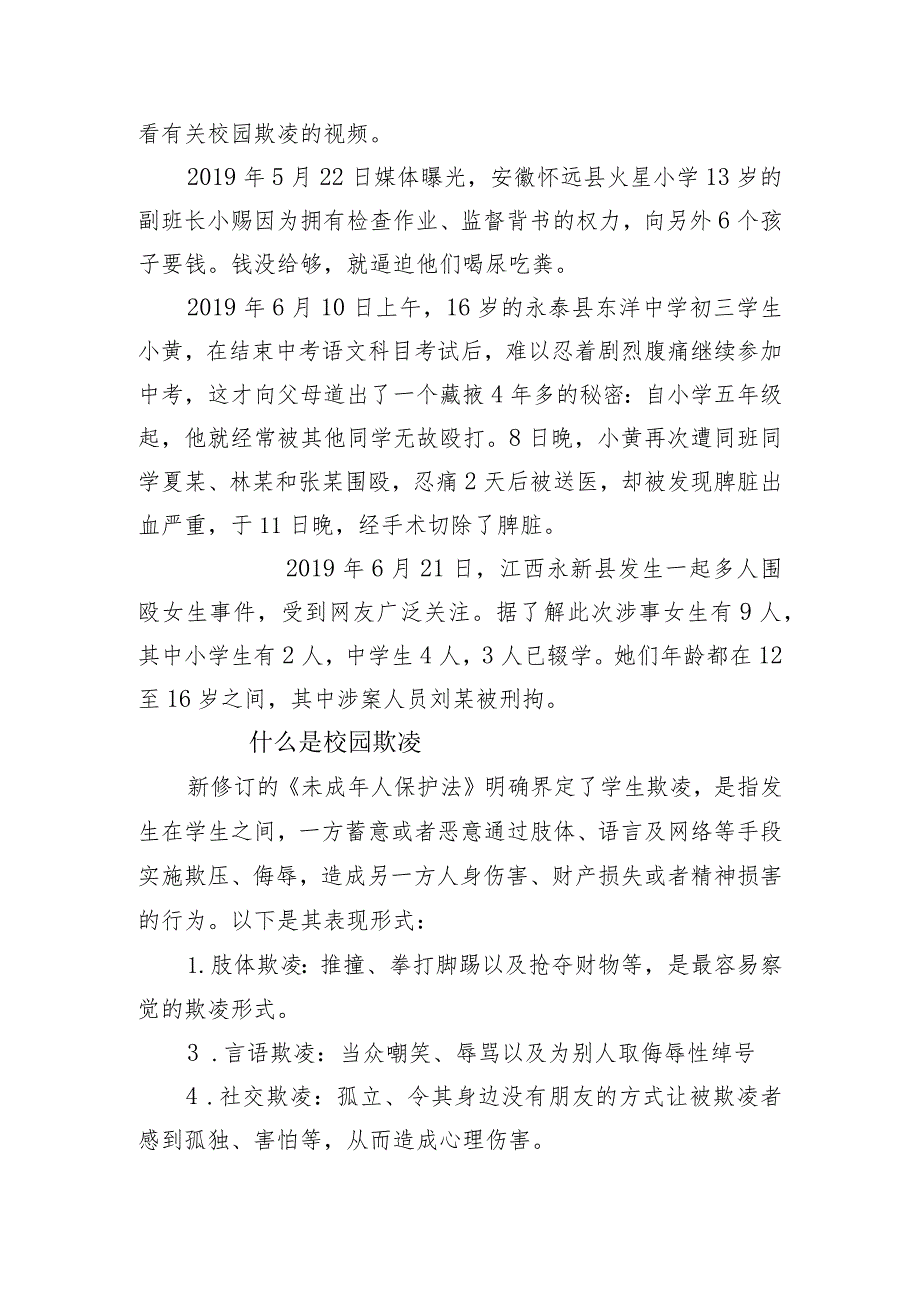 看有关校园欺凌的视频。
2019 年 5 月 22 日媒体曝光，安徽怀远县火星小学 13 岁的
副班长小赐因为拥有检查作业、监督背书的权力，向另外 6 个孩
子要钱。钱没给够，就逼迫他们喝尿吃粪。
2019 年 6 月 10 日上午，16 岁的永泰县东洋中学初三学生
小黄，在结束中考语文科目考试后，难以忍着剧烈腹痛继续参加
中考，这才向父母道出了一个藏掖 4 年多的秘密：自小学五年级
起，他就经常被其他同学无故殴打。8 日晚，小黄再次遭同班同
学夏某、林某和张某围殴，忍痛 2 天后被送医，却被发现脾脏出
血严重，于 11 日晚，经手术切除了脾脏。
2019 年 6 月 21 日，江西永新县发生一起多人围
殴女生事件，受到网友广泛关注。据了解此次涉事女生有 9 人，
其中小学生有 2 人，中学生 4 人，3 人已辍学。她们年龄都在 12
至 16 岁之间，其中涉案人员刘某被刑拘。
什么是校园欺凌
新修订的《未成年人保护法》明确界定了学生欺凌，是指发
生在学生之间，一方蓄意或者恶意通过肢体、语言及网络等手段
实施欺压、侮辱，造成另一方人身伤害、财产损失或者精神损害
的行为。以下是其表现形式：
1.肢体欺凌：推撞、拳打脚踢以及抢夺财物等，是最容易察
觉的欺凌形式。
3 .言语欺凌：当众嘲笑、辱骂以及为别人取侮辱性绰号
4 .社交欺凌：孤立、令其身边没有朋友的方式让被欺凌者
感到孤独、害怕等，从而造成心理伤害。